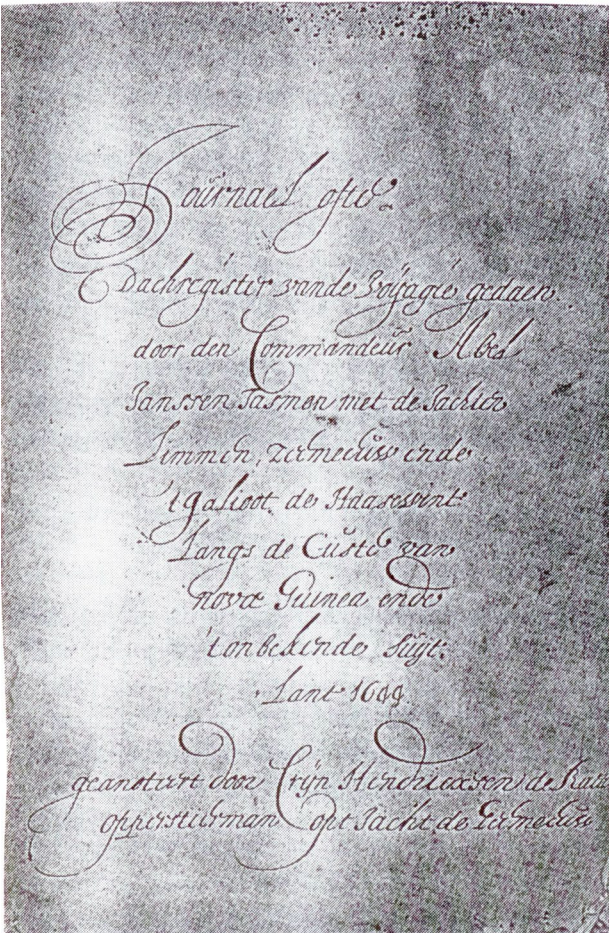 Journael ofte
Dachregister vande Voÿagie gedaen
door den Commandeur Abel
Janssen Tasman met de Jachten
Limmen, Zeemeeuw ende
t galioot de Haasewint
Langs de Custe van
nova Guinea ende
't onbekende Suÿt
Lant
geanoteert door Crÿn Hendricxsen de
opperstuerman opt Jacht de Zeemeeuw